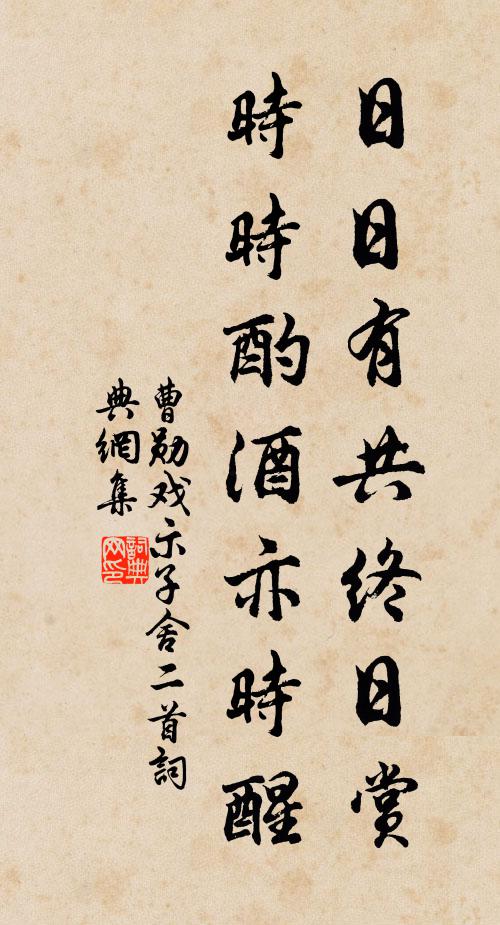 日日有共終日賞
時時酌酒亦時醒
曹勛戏示子舍二首詞
典網集
詞典
网印